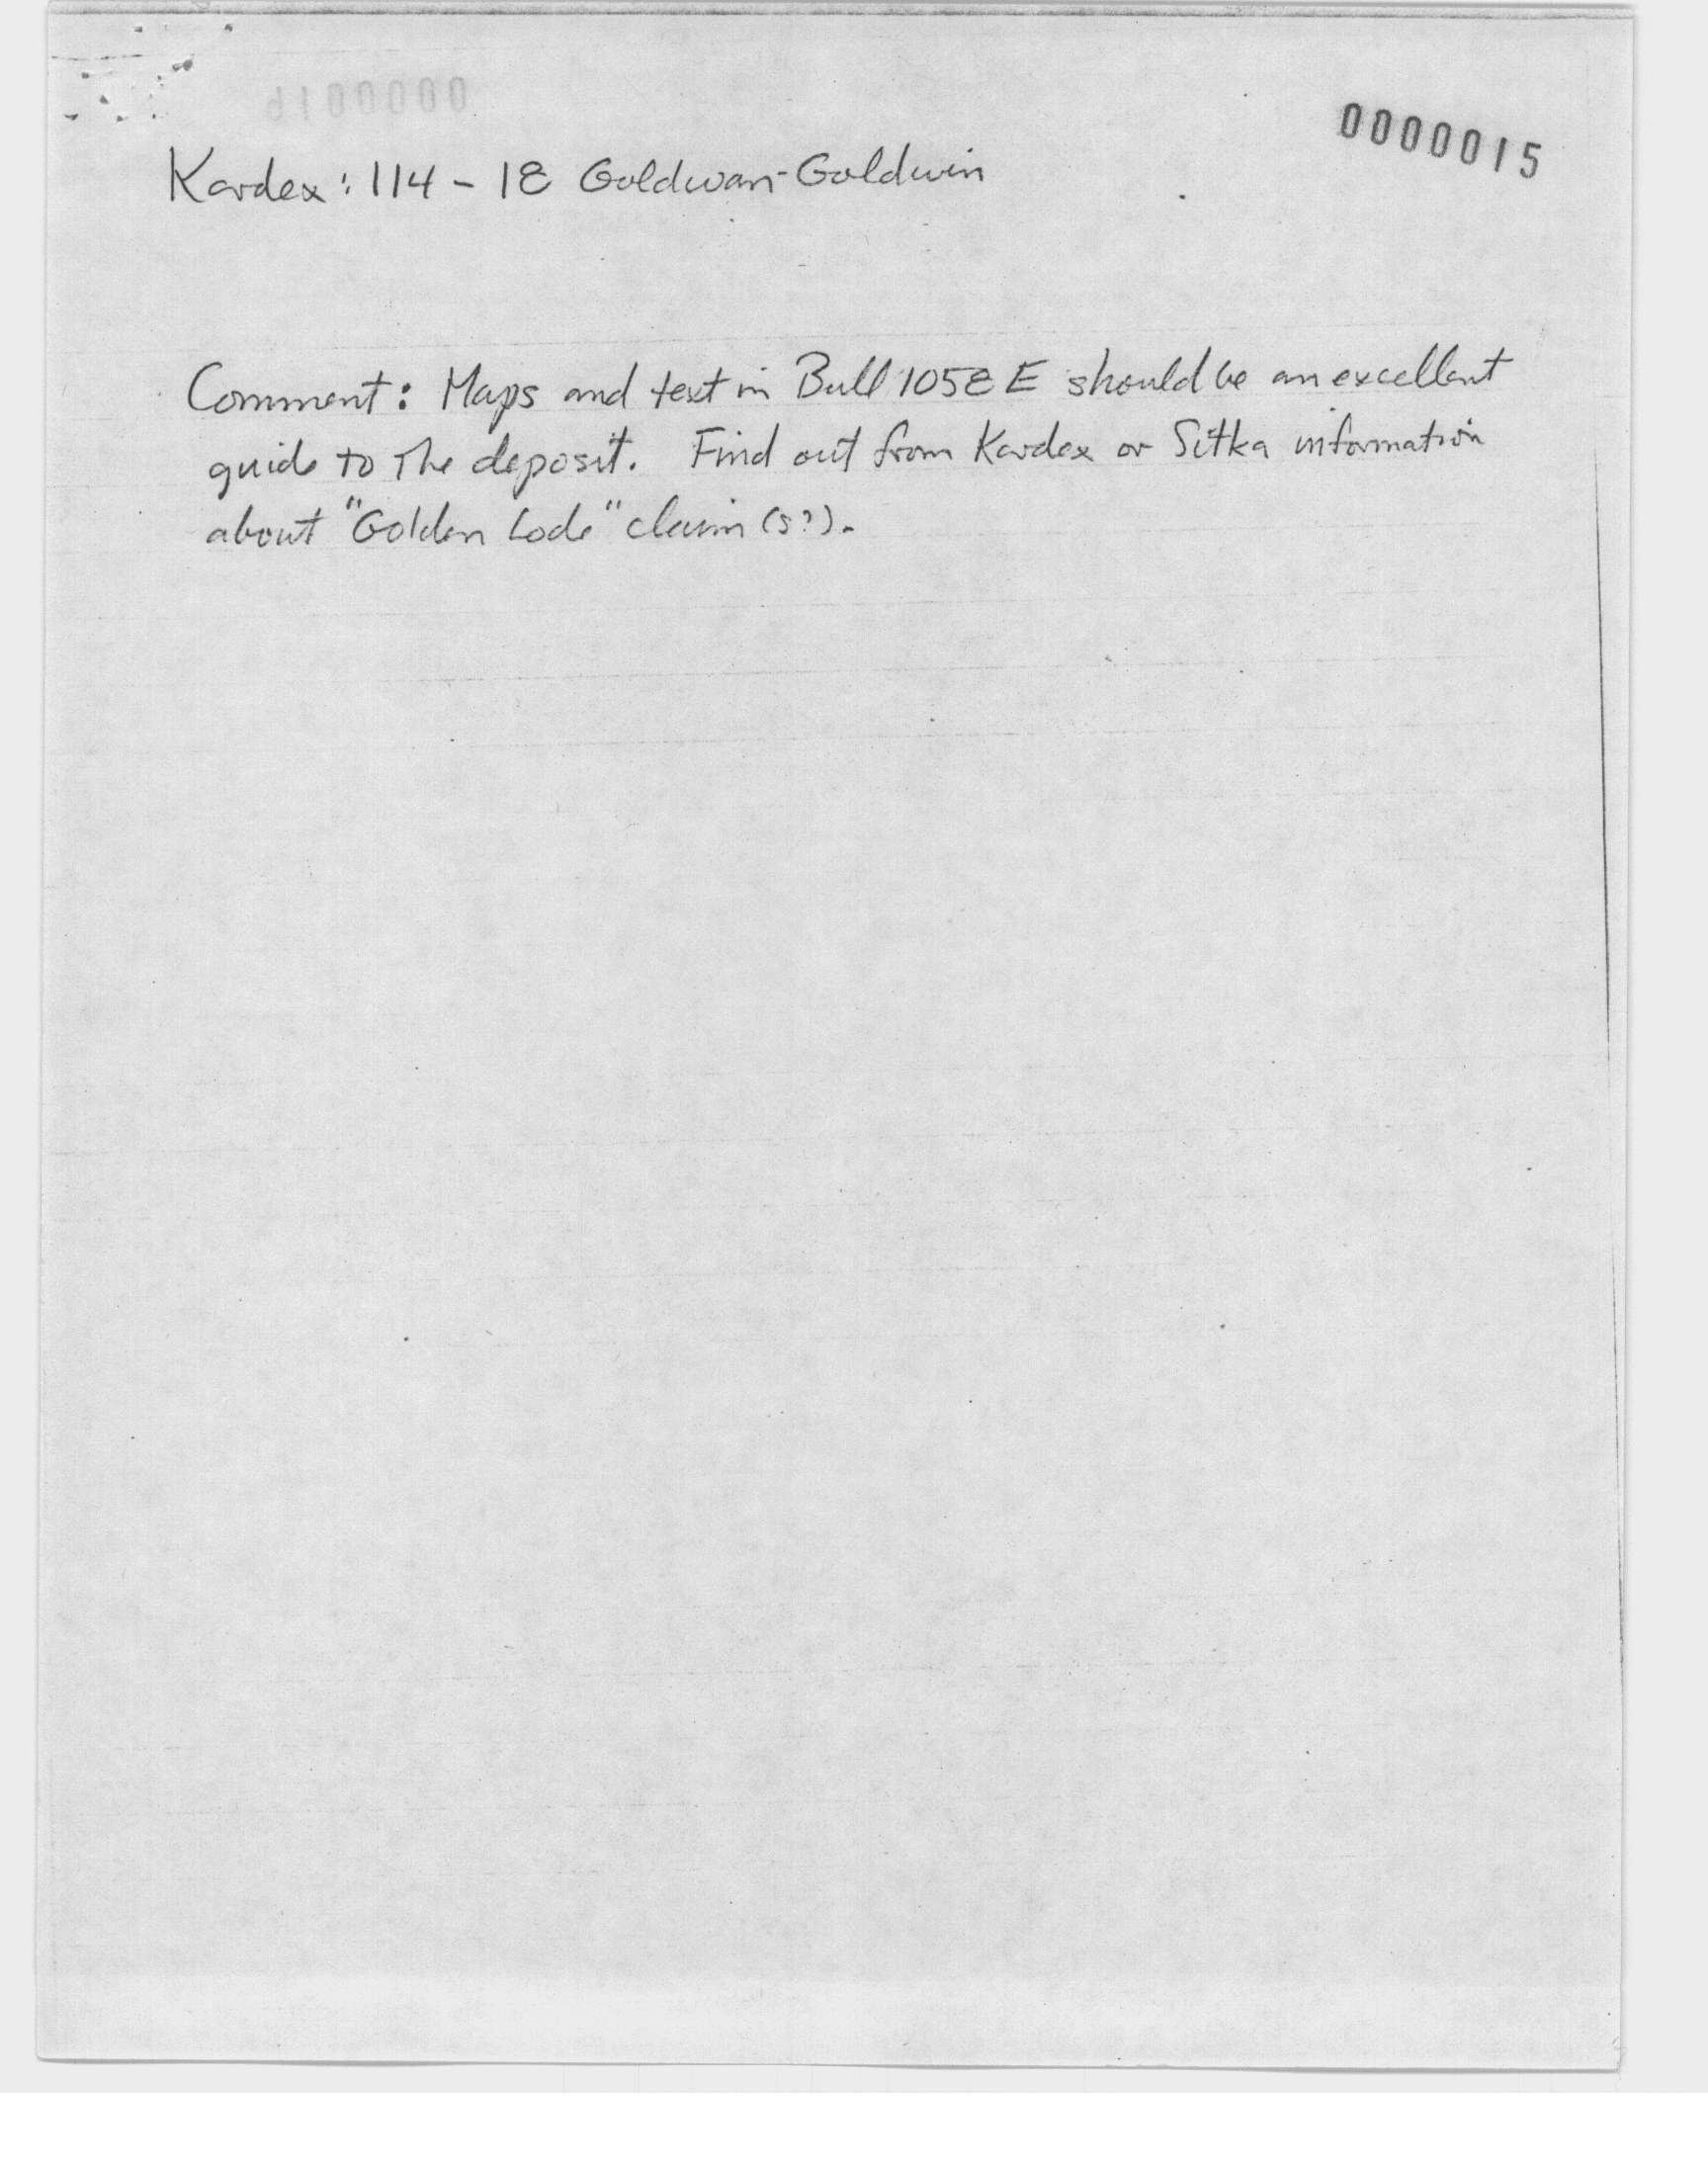 0000015
Kardex: 114 - 18 Goldwan-Goldwin
Comment: Maps and text in Bull 1058 E should be an excellent
guide to the deposit. Find out from Kardex or Sitka information
about "Golden Lode" claim (s?).